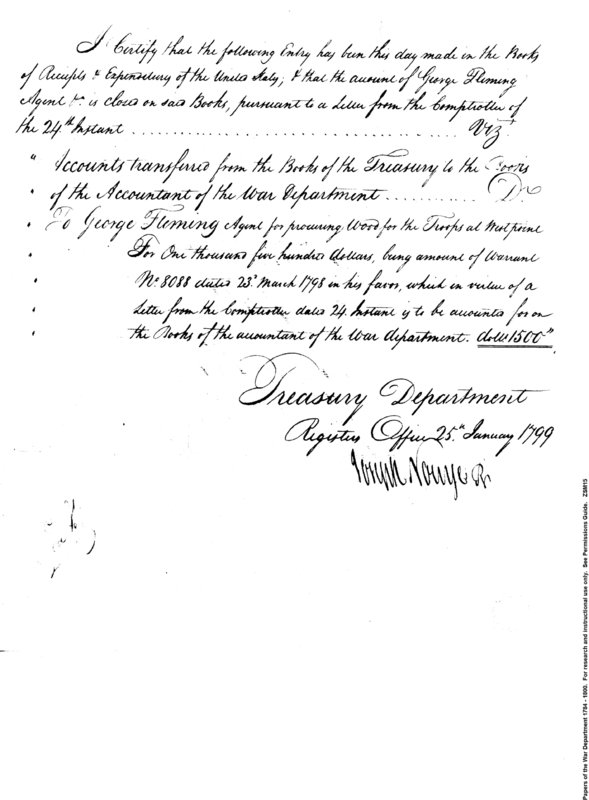 I Certify that the following Entry has been this day made in the Books
of Receipts & Expenditures of the United States; & that the account of George Fleming
Agent &c. is closed on said Books, pursuant to a Letter from the Comptroller of
the 24th Instant ........................................ Vizt
" Accounts transferred from the Books of the Treasury to the Books
" of the Accountant of the War Department ............ Dr
" To George Fleming Agent for procuring Wood for the Troops at Westpoint
" For One thousand five hundred dollars, being amount of Warrant
" No. 8088 dated 23d March 1798 in his favor, which in virtue of a
" Letter from the Comptroller dated 24. Instant is to be accounted for on
" the Books of the accountant of the War department. dolls 1500"
Treasury Department
Registers Office 25th January 1799
Joseph Nourse R
Papers of the War Department 1784 - 1800. For research and instructional use only. See Permissions Guide. ZSM15